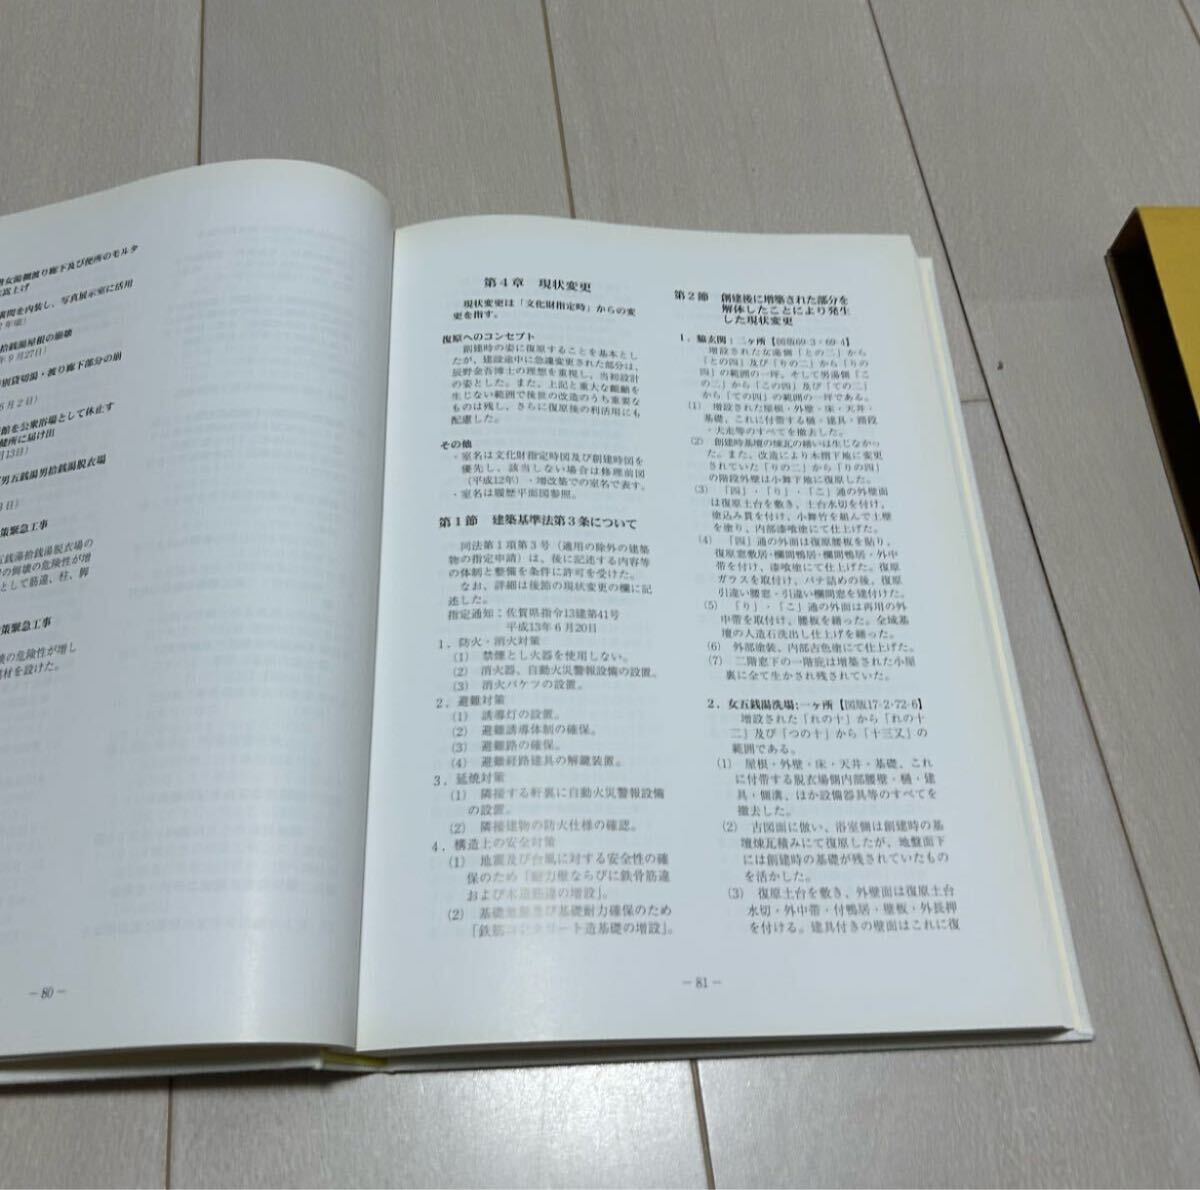 男女湯棚渡り廊下及び便所のモルタ
嵩上げ
広間を内装し、写真展示室に活用
年頃)
拾銭湯屋根の崩壊
年9月27日)
別貸切湯・渡り廊下部分の崩
5月2日)
館を公衆浴場として休止す
健所に届け出
月13日)
男五銭湯男拾銭湯脱衣場
日)
策緊急工事
五銭湯拾銭湯脱衣場の
の倒壊の危険性が増
として筋違、柱、脚
策緊急工事
壊の危険性が増し
部材を設けた。
－80－
第4章 現状変更
現状変更は「文化財指定時」からの変
更を指す。
復原へのコンセプト
創建時の姿に復原することを基本とし
たが、建設途中に急遽変更された部分は、
辰野金吾博士の理想を重視し、当初設計
の姿とした。また、上記と重大な齟齬を
生じない範囲で後世の改造のうち重要な
ものは残し、さらに復原後の利活用にも
配慮した。
その他
・室名は文化財指定時図及び創建時図を
優先し、該当しない場合は修理前図
(平成12年)・増改築での室名で表す。
・室名は履歴平面図参照。
第1節 建築基準法第3条について
同法第1項第3号（適用の除外の建築
物の指定申請）は、後に記述する内容等
の体制と整備を条件に許可を受けた。
なお、詳細は後節の現状変更の欄に記
述した。
指定通知：佐賀県指令13建第41号
平成13年6月20日
1．防火・消火対策
(1) 禁煙とし火器を使用しない。
(2) 消火器、自動火災警報設備の設置。
(3) 消火バケツの設置。
2．避難対策
(1) 誘導灯の設置。
(2) 避難誘導体制の確保。
(3) 避難路の確保。
(4) 避難経路建具の解鍵装置。
3．延焼対策
(1) 隣接する軒裏に自動火災警報設備
の設置。
(2) 隣接建物の防火仕様の確認。
4．構造上の安全対策
(1) 地震及び台風に対する安全性の確
保のため「耐力壁ならびに鉄骨筋違
および木造筋違の増設」。
(2) 基礎地盤及び基礎耐力確保のため
「鉄筋コンクリート造基礎の増設」。
第2節 創建後に増築された部分を
解体したことにより発生
した現状変更
1．脇玄関：二ヶ所【図版69-3・69-4】
増設された女湯側「との二」から
「との四」及び「りの二」から「りの
四」の範囲の一坪。そして男湯側「こ
の二」から「この四」及び「ての二」
から「ての四」の範囲の一坪である。
(1) 増設された屋根・外壁・床・天井・
基礎、これに付帯する樋・建具・踏段
・犬走等のすべてを撤去した。
(2) 創建時基壇の煉瓦の繕いは生じなかっ
た。また、改造により木摺下地に変更
されていた「りの二」から「りの四」
の階段外壁は小舞下地に復原した。
(3) 「四」・「り」・「こ」通の外壁面
は復原土台を敷き、土台水切を付け、
塗込み貫を付け、小舞竹を組んで土壁
を塗り、内部漆喰塗にて仕上げた。
(4) 「四」通の外面は復原腰板を貼り、
復原窓敷居・欄間鴨居・欄間鴨居・外中
帯を付け、漆喰塗にて仕上げた。復原
ガラスを取付け、パテ詰めの後、復原
引違い腰窓・引違い欄間窓を建付けた。
(5) 「り」・「こ」通の外面は再用の外
中帯を取付け、腰板を繕った。全域基
壇の人造石洗出し仕上げを繕った。
(6) 外部塗装、内部古色塗にて仕上げた。
(7) 二階窓下の一階庇は増築された小屋
裏に全て生かされ残されていた。
2．女五銭湯洗場:一ヶ所【図版17-2・72-6】
増設された「れの十」から「れの十
二」及び「つの十」から「十三又」の
範囲である。
(1) 屋根・外壁・床・天井・基礎、これ
に付帯する脱衣場側内部腰壁・樋・建
具・側溝、ほか設備器具等のすべてを
撤去した。
(2) 古図面に倣い、浴室側は創建時の基
壇煉瓦積みにて復原したが、地盤面下
には創建時の基礎が残されていたもの
を活かした。
(3) 復原土台を敷き、外壁面は復原土台
水切・外中帯・付鴨居・壁板・外長押
を付ける。建具付きの壁面はこれに復
－81－